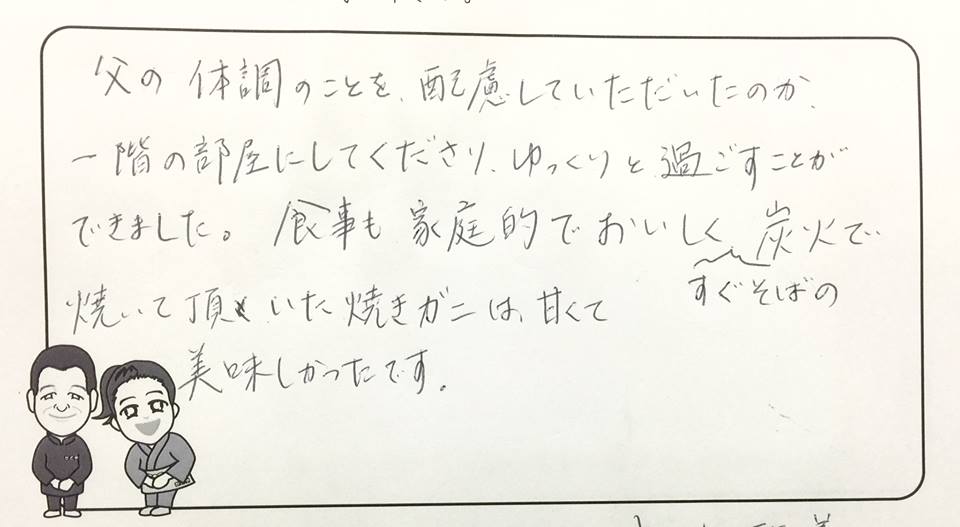 父の体調のことを、配慮していただいたのか、
一階の部屋にしてくださり、ゆっくりと過ごすことが
できました。食事も家庭的でおいしく、炭火で
すぐそばの
焼いて頂いた焼きガニは、甘くて
美味しかったです。